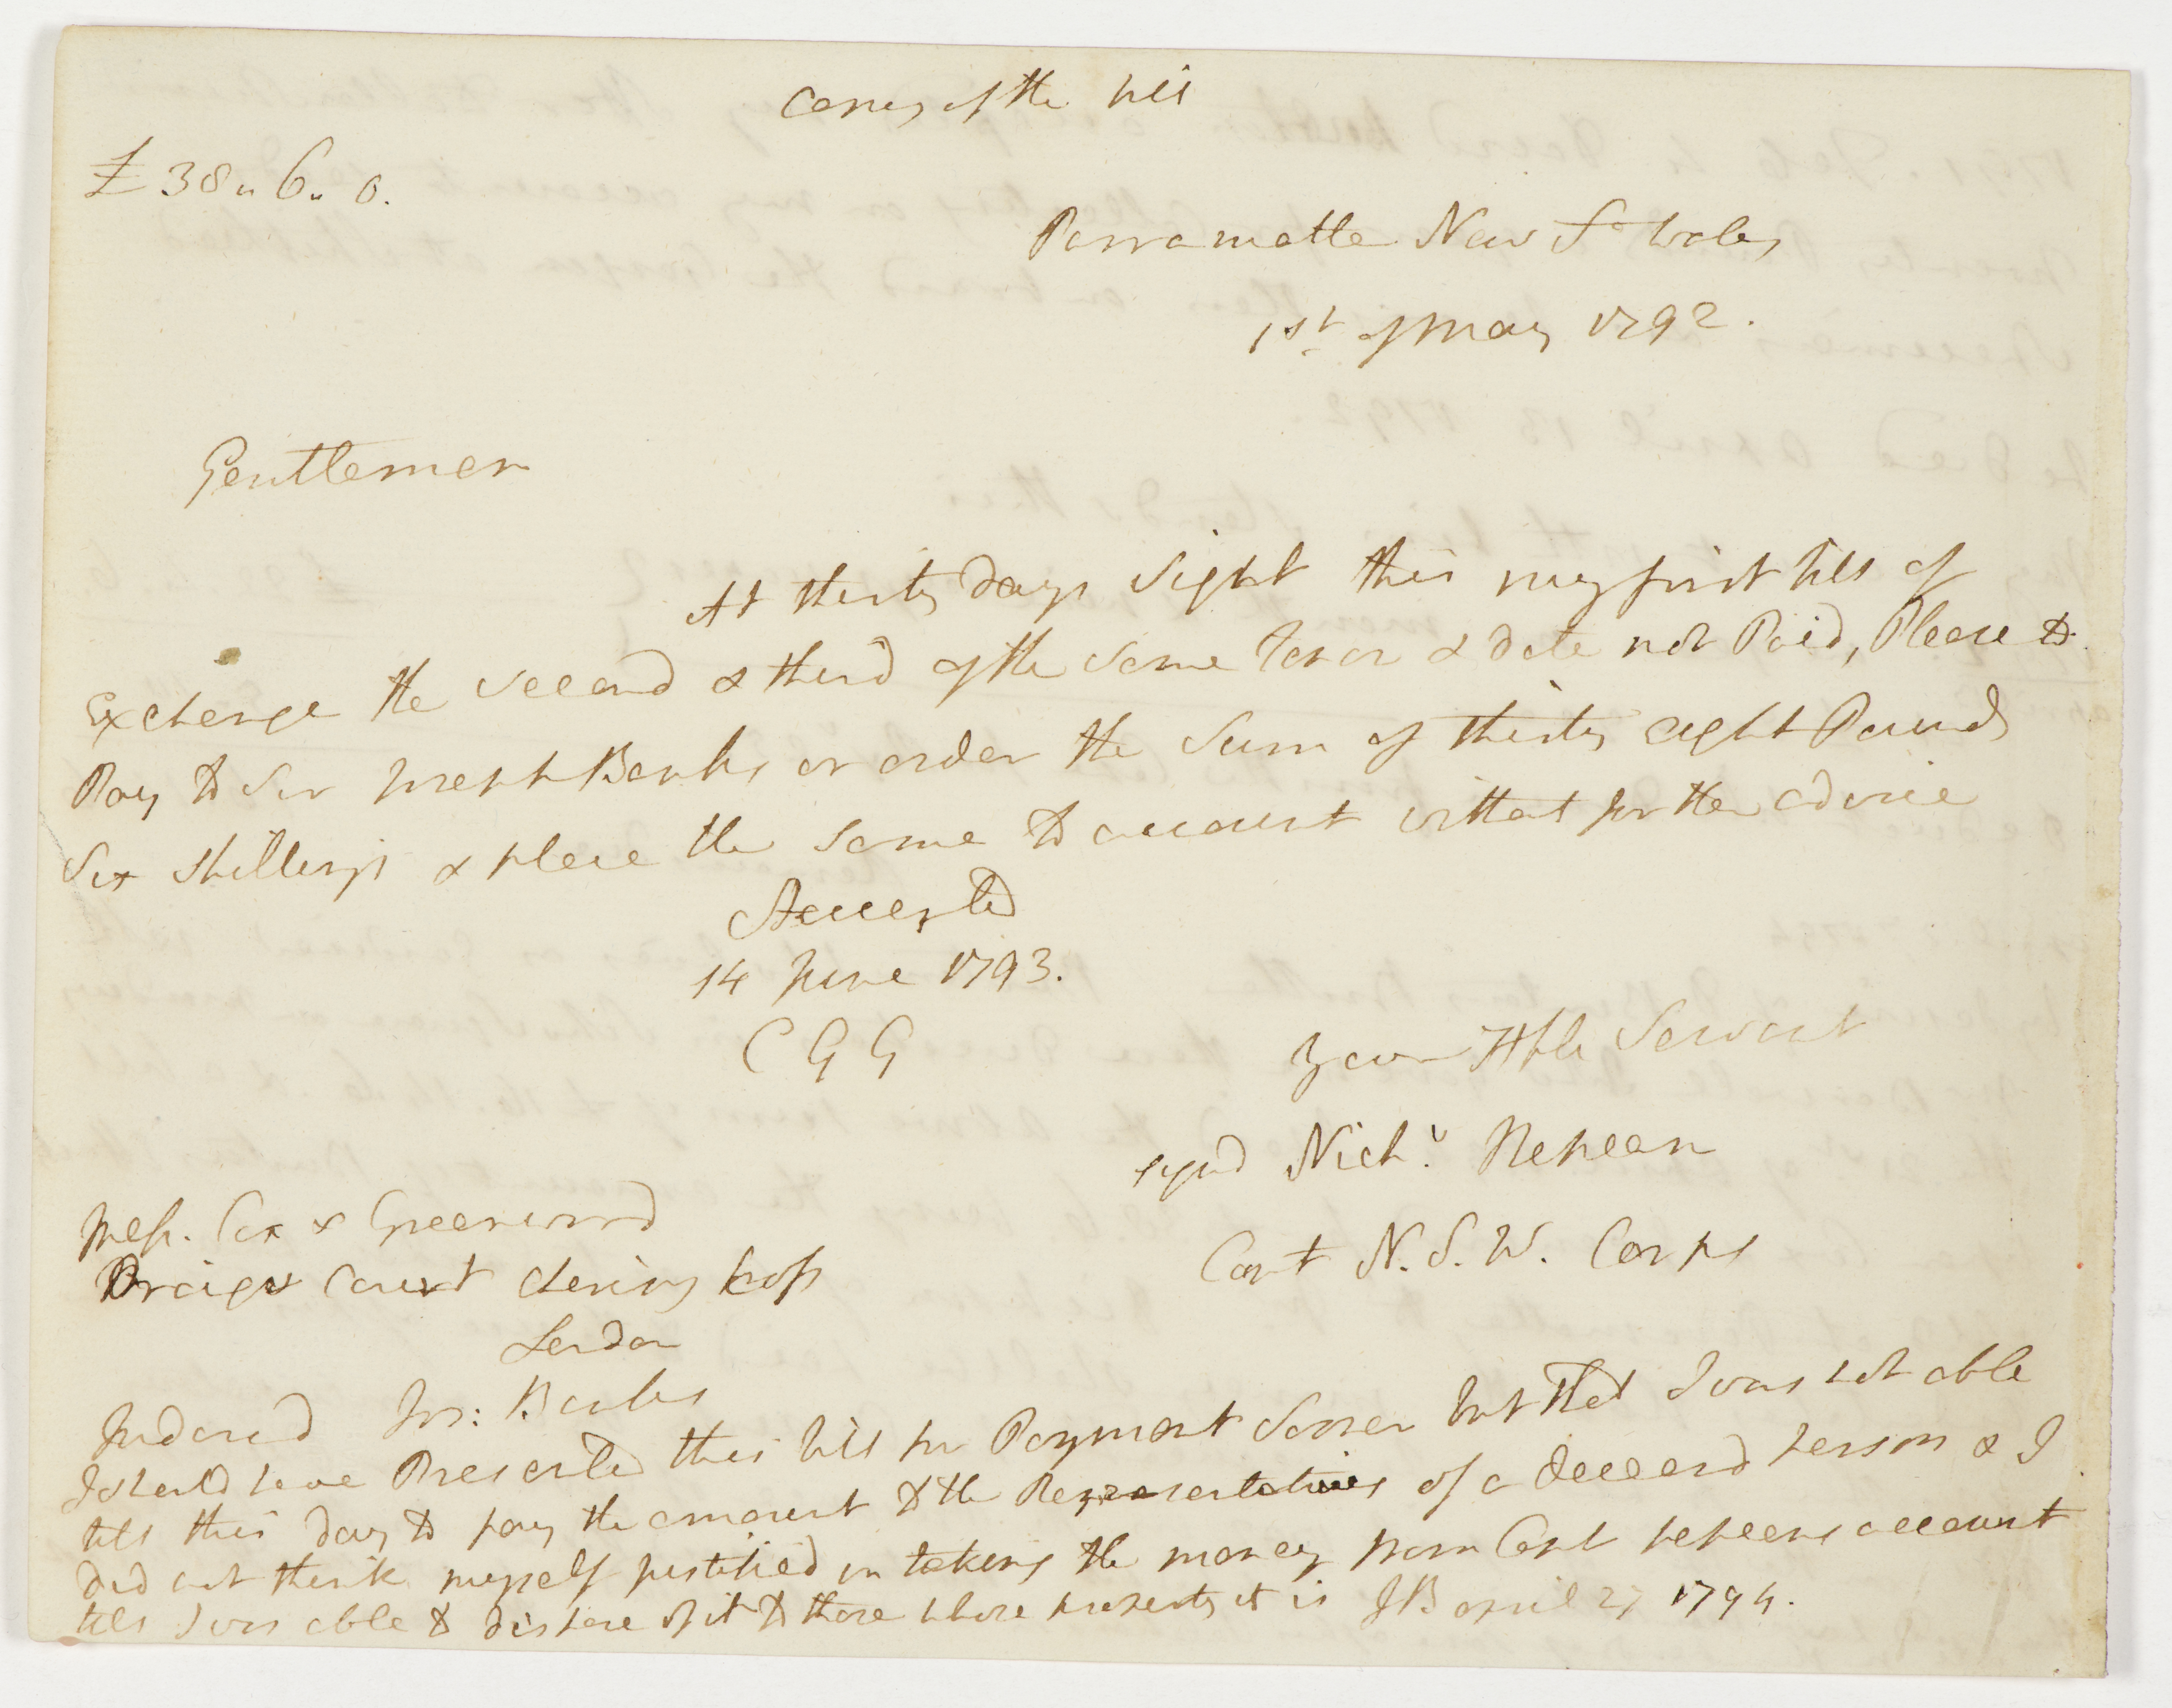 Copy of the bill
£38 " 6 " 0.
Parramatta New So Wales
1st. of May 1792.
Gentlemen
At thirty days sight this my first bill of
Exchange the second & third of the same tenor & date not Paid, Please to
Pay to Sir Joseph Banks or order the Sum of thirty eight Pounds
Six shillings & place the same to account without further advice
Accepted
14 June 1793.
C G G
your Hble Servant
signd Nichs. Nepean
Capt N. S. W. Corps
Messrs. Cox & Greenwood
Craigs Court Charing Cross
London
Indorsd Jos: Banks
I should have Presented this bill for Payment sooner but that I was not able
till this day to pay the amount to the Representatives of a deceasd person & I
did not think myself justified in taking the money from Capt Nepeans account
till I was able to dispose of it to those whose property it is JB april 27 1794.